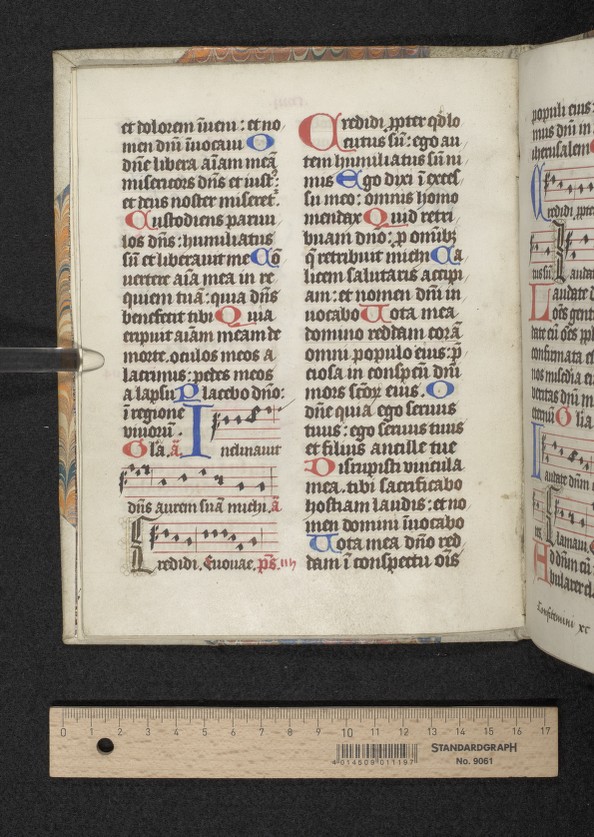 et dolorem īueni : et no
men dn̄i īuocaui O
dn̄e libera aīam meā
misericors dn̄s et iust᷒:
et deus noster miseret᷑.
Custodiens paruu
los dn̄s : humiliatus
sū et liberauit me Cō
uertere aīa mea in re
quiem tuā : quia dn̄s
benefecit tibi Quia
eripuit aīam meam de
morte. oculos meos a
lacrimis : pedes meos
a lapsu Placebo dn̄o :
ī regione
viuorū .
Gl̄a. ā.
Inclinauit
dn̄s aurem suā michi. ā
Credidi. Euouae. ps̄.
Credidi ꝓpter qd̓ lo
cutus sū : ego au
tem humiliatus sū ni
mis Ego dixi ī exces
su meo : omnis homo
mendax Quid retri
buam dn̄o : ꝓ om̄ibꝫ
q̄ retribuit michi Ca
licem salutaris accipi
am : et nomen dn̄i in
uocabo Uota mea
domino reddam corā
omni populo eius : p̄
ciosa in conspcū dn̄i
mors sc̄oꝝ eius. O
dn̄e quia ego seruus
tuus : ego seruus tuus
et filius ancille tue
Disrupisti vincula
mea . tibi sacrificabo
hostiam laudis : et no
men domini īuocabo
Uota mea dn̄o red
dam ī conspectu oīs
populi eius :
mus dn̄i in
iherusalem
Laudate d
Oēs gent
confirmata e
0 1 2 3 4 5 6 7 8 9 10 11 12 13 14 15 16 17
4 014509 011197
STANDARDGRAPH
No. 9061